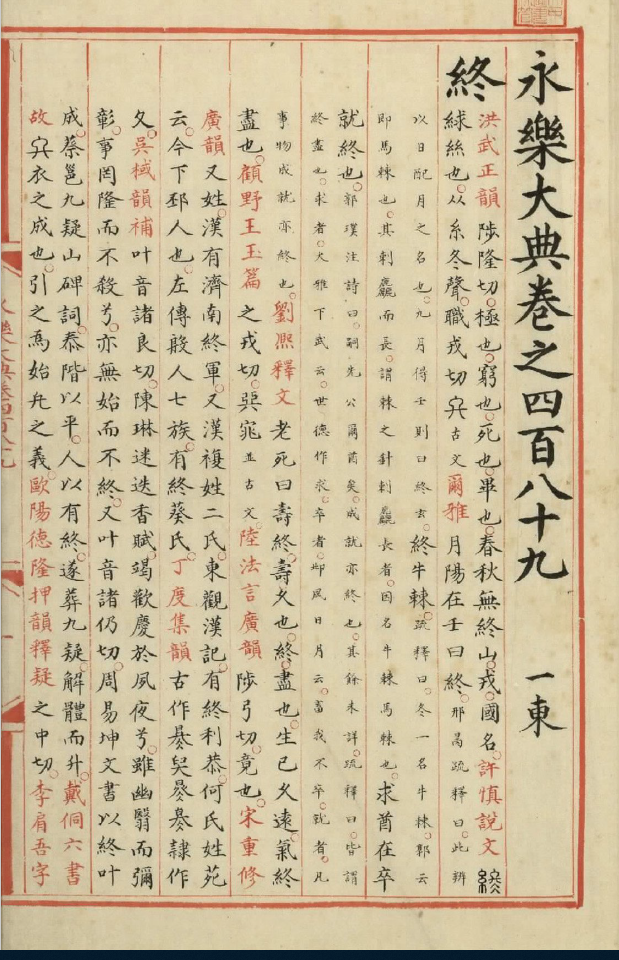 永樂大典卷之四百八十九 一東
終 洪武正韻陟隆切極也窮也死也畢也春秋無終山戎國名許慎說文
絿絲也从糸冬聲職戎切古文爾雅月陽在壬曰終邢昺疏釋曰此辨
以日配月之名也九月得壬則曰終玄終牛棘疏釋曰終一名牛棘郭云
即馬棘也其刺麤而長謂棘之針刺麤長者因名牛棘馬棘也求酋在卒
就終也郭璞注詩曰嗣先公爾酋矣成就亦終也其餘未詳疏釋曰皆謂
終盡也求者大雅下武云世德作求卒者邶風日月云畜我不卒就者凡
事物成就亦終也劉熙釋文老死曰壽終壽久也終盡也生已久遠氣終
盡也顧野王玉篇之戎切並古文陸法言廣韻陟弓切竟也宋重修
廣韻又姓漢有濟南終軍又漢複姓二氏東觀漢記有終利恭何氏姓苑
云今下邳人也左傳殷人七族有終葵氏丁度集韻古作隸作
夂吳棫韻補叶音諸良切陳琳迷迭香賦竭歡慶於夙夜兮雖幽翳而彌
彰事罔隆而不殺兮亦無始而不終又叶音諸仍切周易坤文書以終叶
成蔡邕九疑山碑詞泰階以平人以有終遂葬九疑解體而升戴侗六書
故衣之成也引之爲始之義歐陽德隆押韻釋疑之中切李肩吾字
永樂大典卷四百八十九